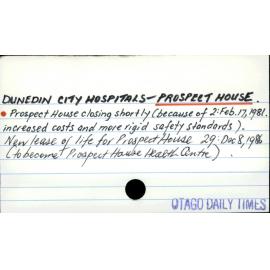 DUNEDIN CITY HOSPITALS - PROSPECT HOUSE.
Prospect House closing shortly (because of 2: Feb. 17, 1981.
increased costs and more rigid safety standards).
New lease of life for Prospect House 29: Dec 8, 1986
(to become Prospect House Health Centre).
OTAGO DAILY TIMES